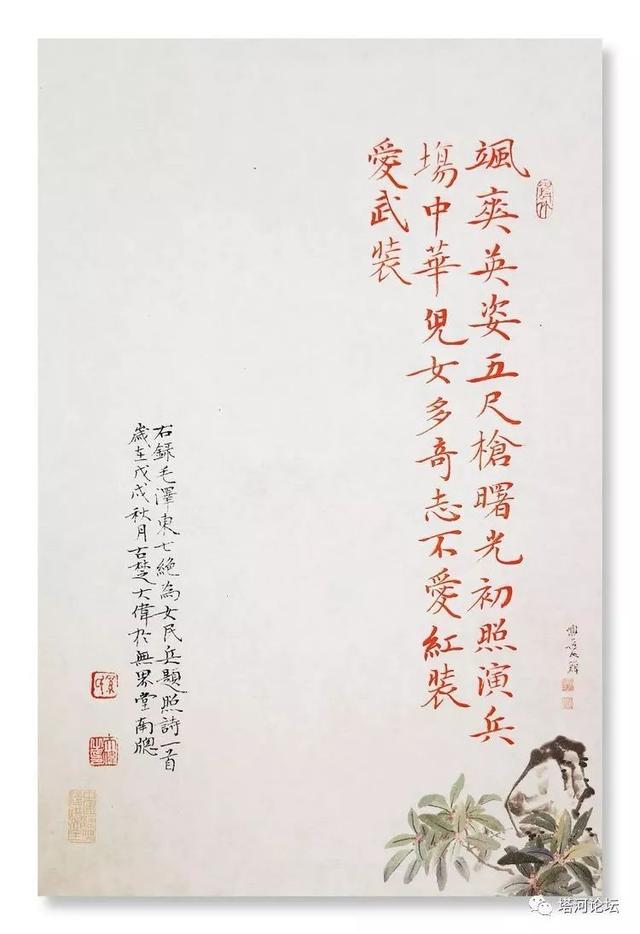 颯爽英姿五尺槍曙光初照演兵
場中華兒女多奇志不愛紅裝
愛武裝
右錄毛澤東七絕為女民兵題照詩一首
歲在戊戌秋月古楚大偉於無界堂南牕
塔河论坛